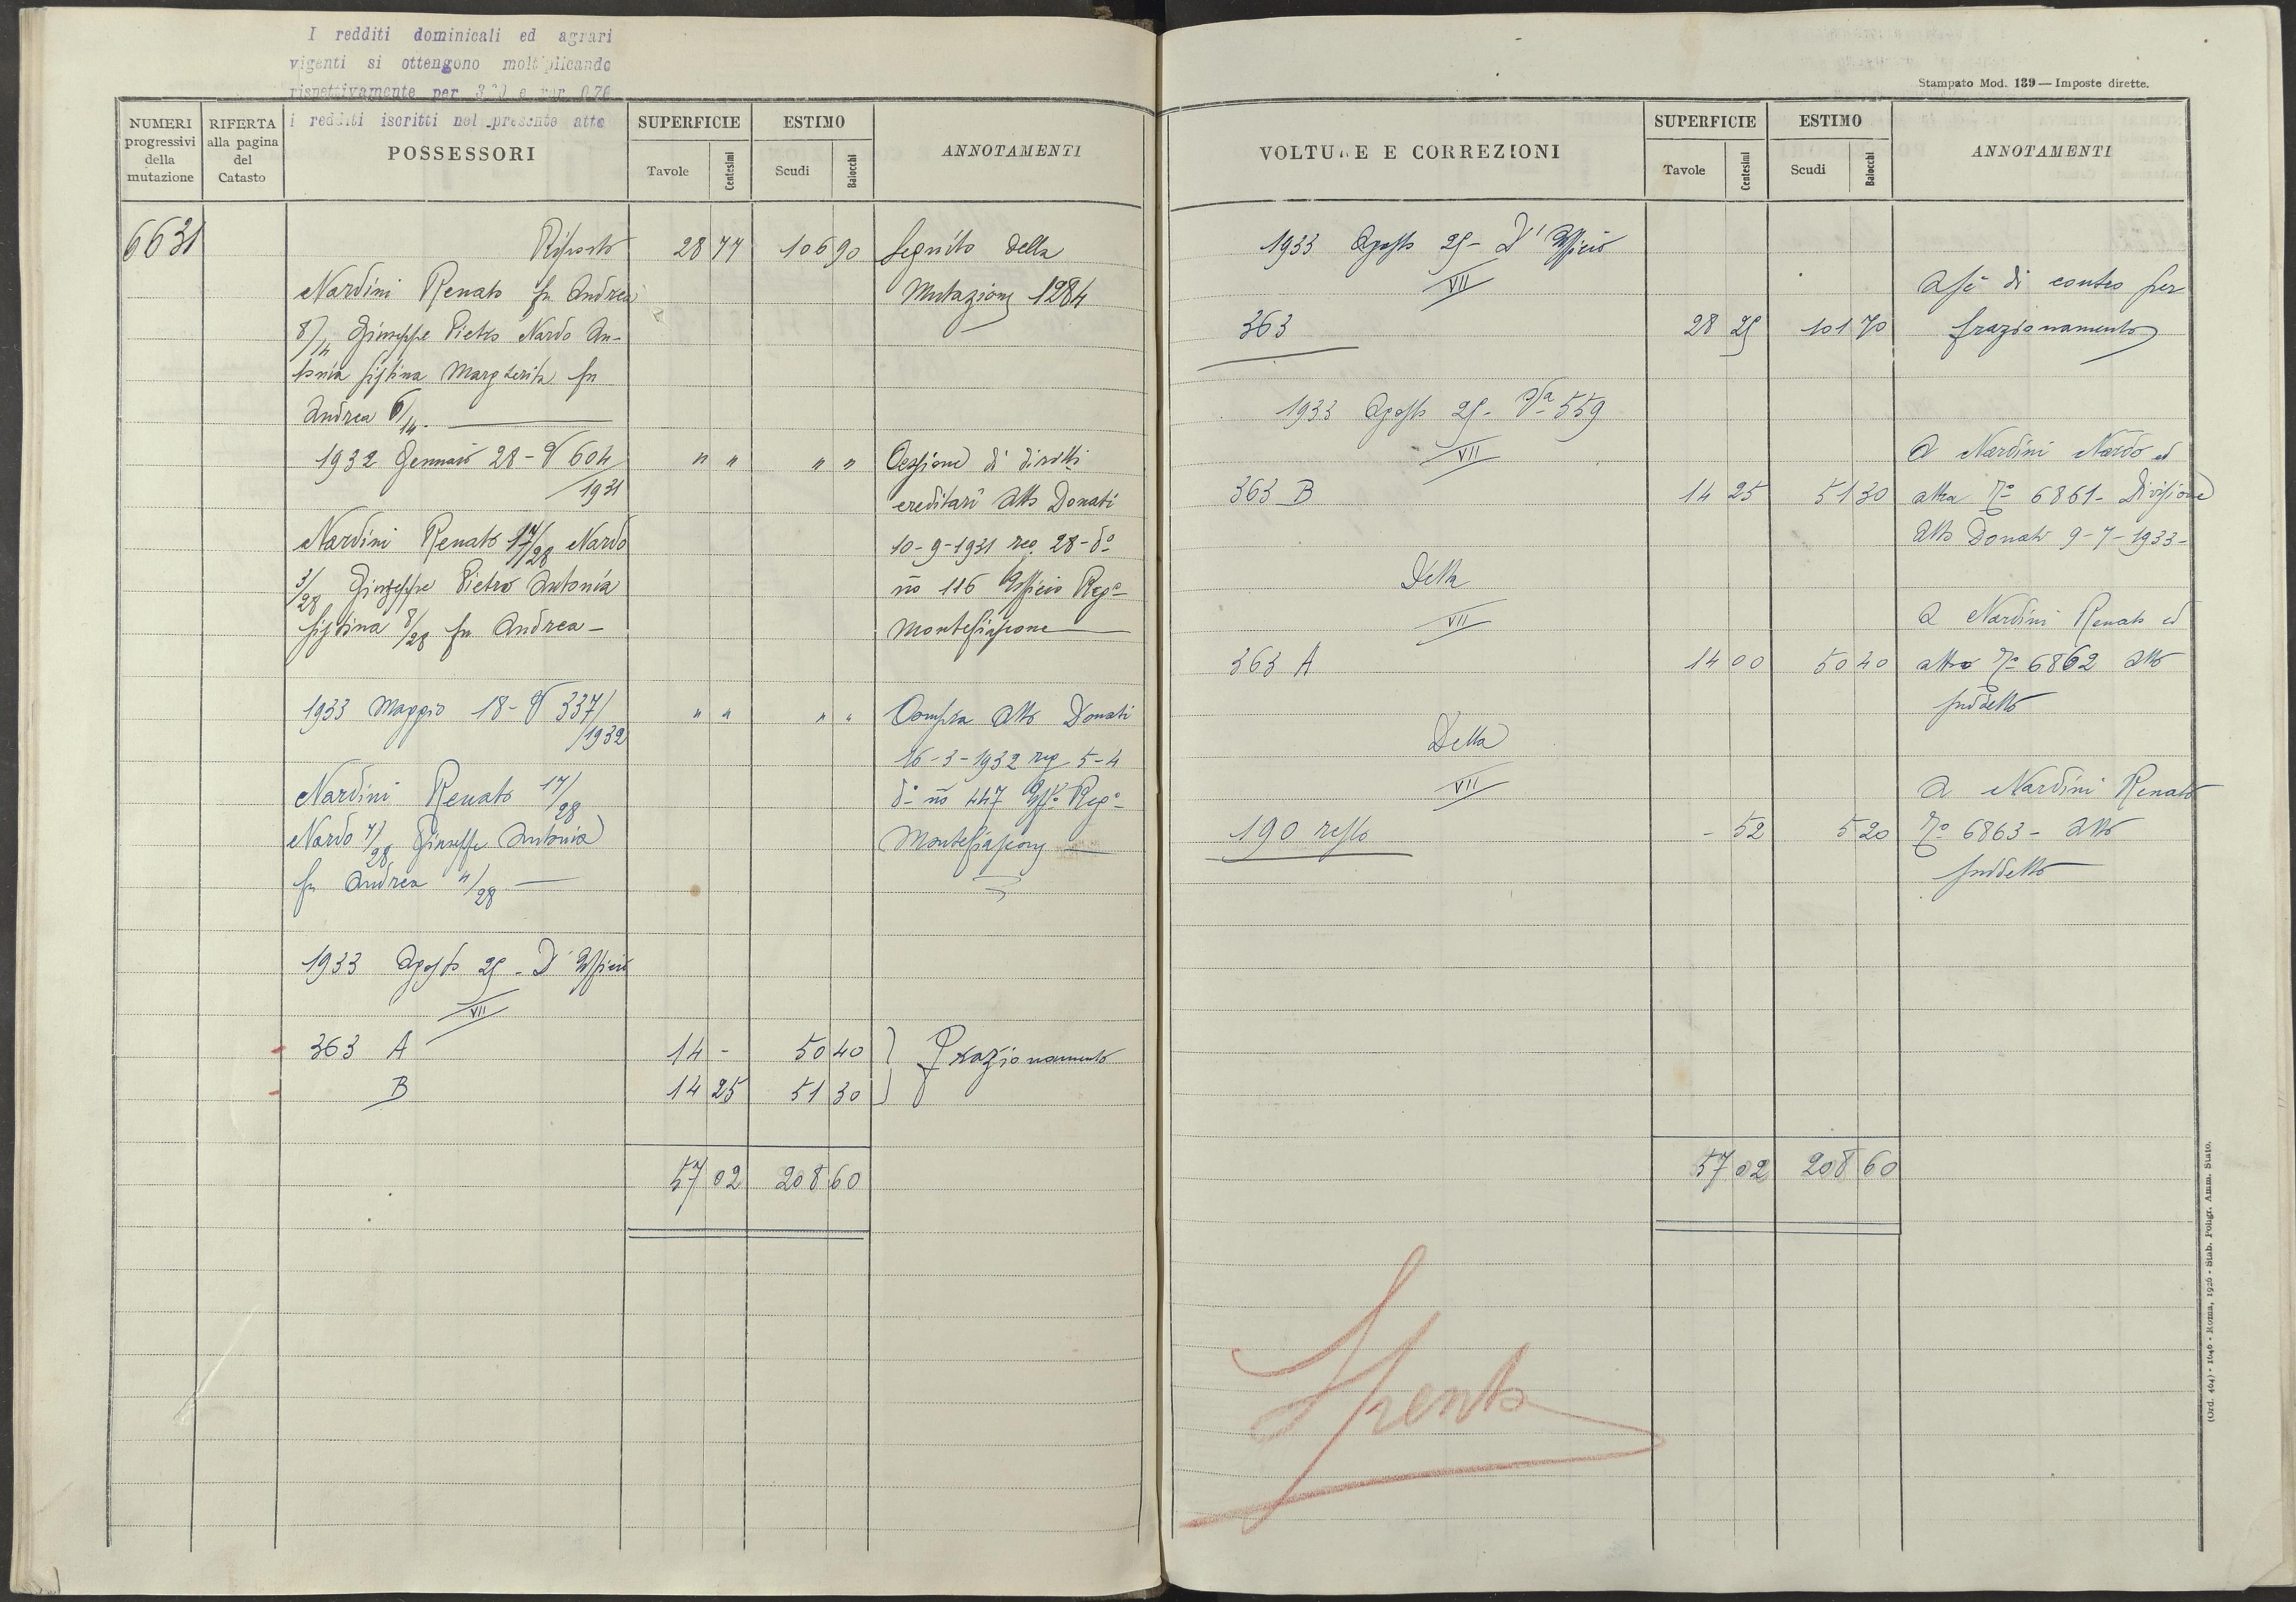 I redditi dominicali ed agrari
vigenti si ottengono moltiplicando
rispettivamente per e per 0,76
i redditi iscritti nel presente atto
NUMERI progressivi della mutazione
RIFERTA alla pagina del Catasto
POSSESSORI
SUPERFICIE
Tavole Centesimi
ESTIMO
Scudi Baiocchi
ANNOTAMENTI
6631 Riporto 28 77 106 90 Seguito della
Nardini Renato fu Andrea Mutazione 1284
8/14 Giuseppe Pietro Nardo An-
tonia Sistina Margherita fu
Andrea 6/14.
1932 Gennaio 28 - V 604 " " " " Cessione di diritti
/1931 ereditari atto Donati
Nardini Renato 17/28 Nardo 10-9-1931 reg. 28-do
3/28 Giuseppe Pietro Antonia no 116 Ufficio Rego
Sistina 8/28 fu Andrea - Montefiascone
1933 Maggio 18 - V 337/ " " " " Compra atto Donati
/1932 16-3-1932 reg 5-4
Nardini Renato 17/28 do no 447 Uffo Rego
Nardo 7/28 Giuseppe Antonia Montefiascone
fu Andrea 4/28
1933 Agosto 25 - D'Ufficio
VII
363 A 14 - 50 40 } Frazionamento
B 14 25 51 30 }
57 02 208 60
Stampato Mod. 139 — Imposte dirette.
VOLTURE E CORREZIONI
SUPERFICIE
Tavole Centesimi
ESTIMO
Scudi Baiocchi
ANNOTAMENTI
1933 Agosto 25 - D'Ufficio
VII A sé di contro per
363 28 25 101 70 frazionamento
1933 Agosto 25 - Va 559
VII A Nardini Nardo ed
363 B 14 25 51 30 altra No 6861 - Divisione
atto Donati 9-7-1933 -
Detta
VII A Nardini Renato ed
363 A 14 00 50 40 altro No 6862 atto
suddetto
Detta
VII A Nardini Renato
190 resto - 52 5 20 No 6863 - atto
suddetto
57 02 208 60
Spenta
(Ord. 404) - 1646 - Roma, 1926 - Stab. Poligr. Amm. Stato.